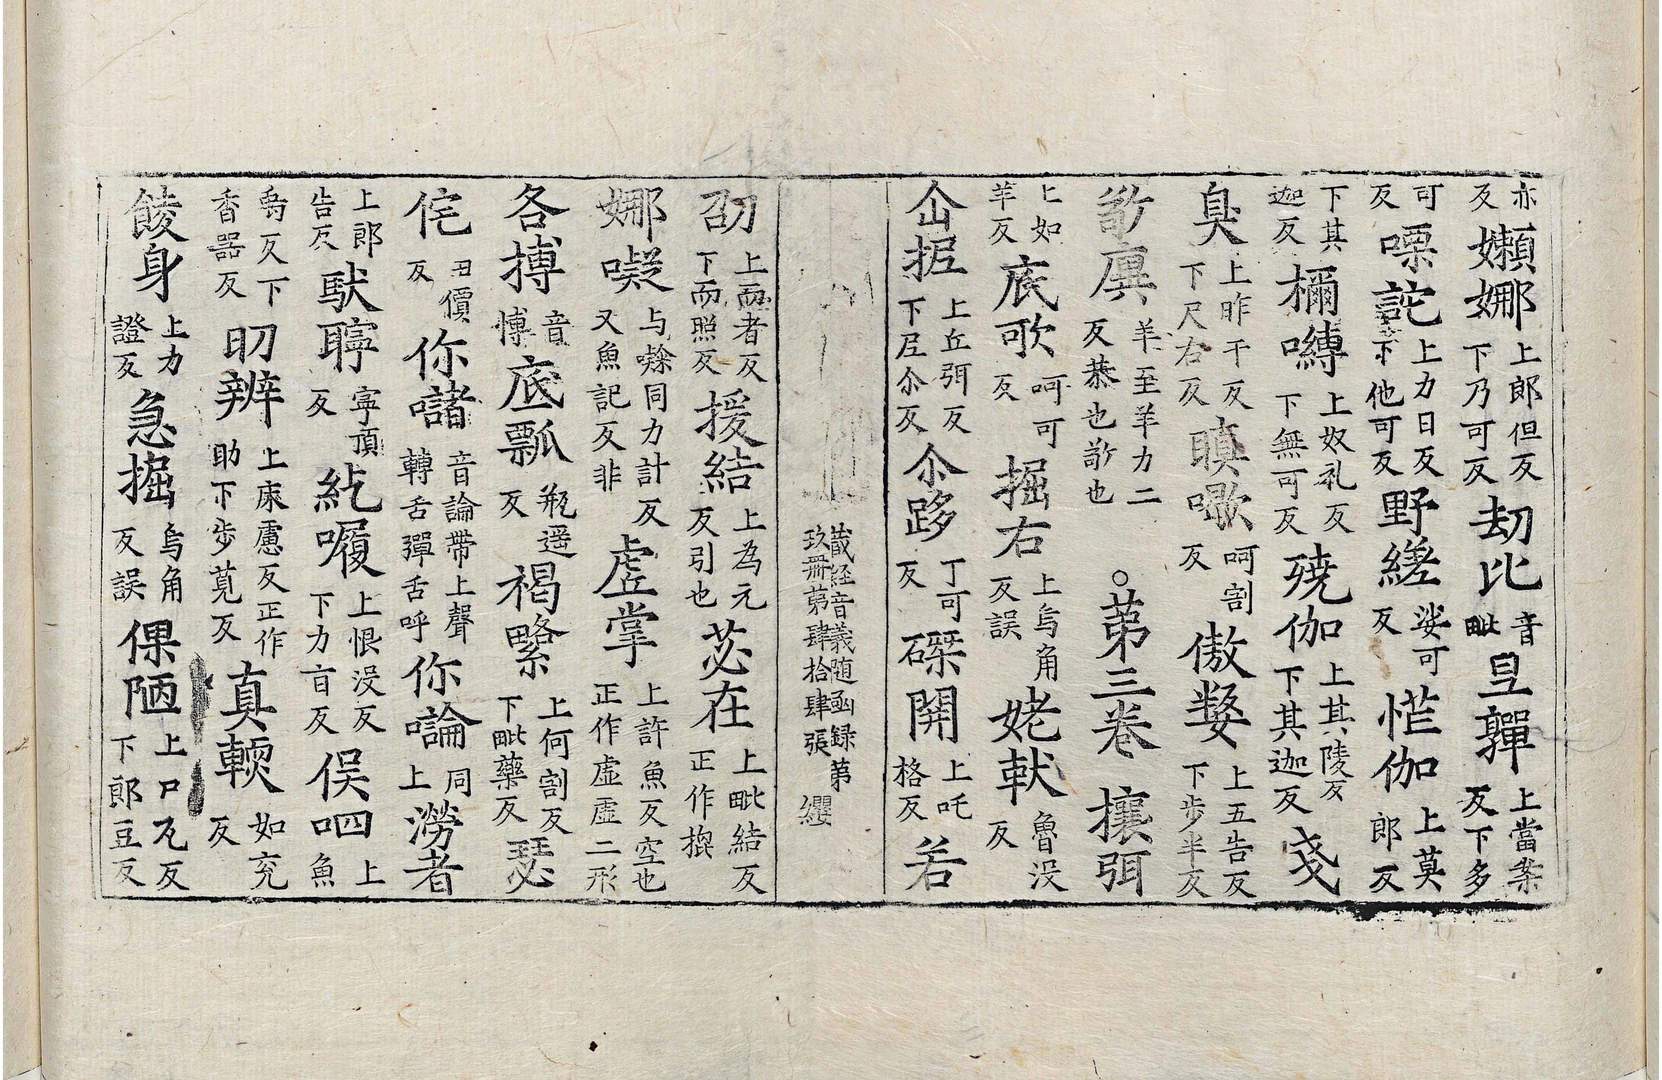 亦反嬾娜上郎但反下乃可反刧比音毗皇䩥上當桒反下多
可反㗚詑上力日反下他可反野縒娑可反恾伽上莫郎反
下其迦反檷嚩上奴礼反下無可反殑伽上其陵反下其迦反戔
臭上昨干反下尺右反瞋㰤呵割反傲嫳上五告反下步半反
歚廙羊至羊力二反恭也歚也○苐三卷攘弭
上如羊反底歌呵可反掘右上烏角反誤姥䭾魯没反
企抳上丘弭反下尼尒反尒跢丁可反磔開上吒格反若
藏経音義随函録苐玖冊苐肆拾肆張 纓
䂏上而者反下而照反援結上為元反引也苾在上毗結反正作揬
娜㘈上与㖷同力計反又魚記反非虗掌上許魚反空也正作虚虛二形
各搏音愽底瓢瓶遥反褐綮上何割反下毗藥反瑟
侘丑價反你䜈音論帶上聲轉舌彈舌呼你㖮同上澇者
上郎告反䭾聹寧頂反紇㘑上恨没反下力盲反俣呬上魚
禹反下香器反㓞辨上床慮反正作助下步莧反真輭如充反
餧身上力證反急掘烏角反誤倮陋上口瓦反下郎豆反